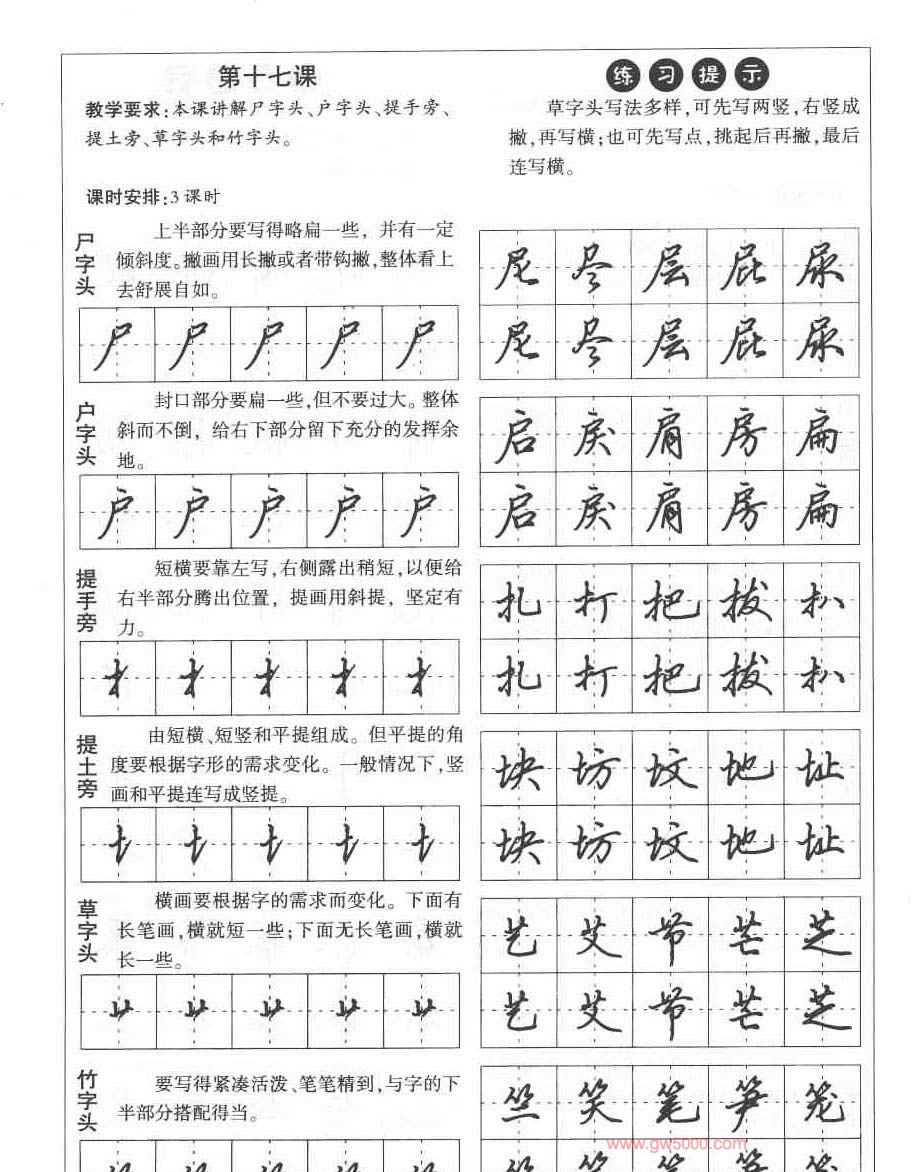 第十七课
教学要求:本课讲解尸字头、户字头、提手旁、
提土旁、草字头和竹字头。
课时安排:3课时
练习提示
草字头写法多样,可先写两竖,右竖成
撇,再写横;也可先写点,挑起后再撇,最后
连写横。
尸字头
上半部分要写得略扁一些，并有一定
倾斜度。撇画用长撇或者带钩撇,整体看上
去舒展自如。
尸 尸 尸 尸 尸
尾 尽 层 屁 尿
尾 尽 层 屁 尿
户字头
封口部分要扁一些,但不要过大。整体
斜而不倒，给右下部分留下充分的发挥余
地。
户 户 户 户 户
启 戾 肩 房 扁
启 戾 肩 房 扁
提手旁
短横要靠左写,右侧露出稍短,以便给
右半部分腾出位置，提画用斜提，坚定有
力。
扌 扌 扌 扌 扌
扎 打 把 拔 扒
扎 打 把 拔 扒
提土旁
由短横、短竖和平提组成。但平提的角
度要根据字形的需求变化。一般情况下,竖
画和平提连写成竖提。
土 土 土 土 土
块 坊 坟 地 址
块 坊 坟 地 址
草字头
横画要根据字的需求而变化。下面有
长笔画,横就短一些;下面无长笔画,横就
长一些。
艹 艹 艹 艹 艹
艺 艾 节 芒 芝
艺 艾 节 芒 芝
竹字头
要写得紧凑活泼、笔笔精到,与字的下
半部分搭配得当。
竺 笑 笔 笋 笼
www.gw5000.com